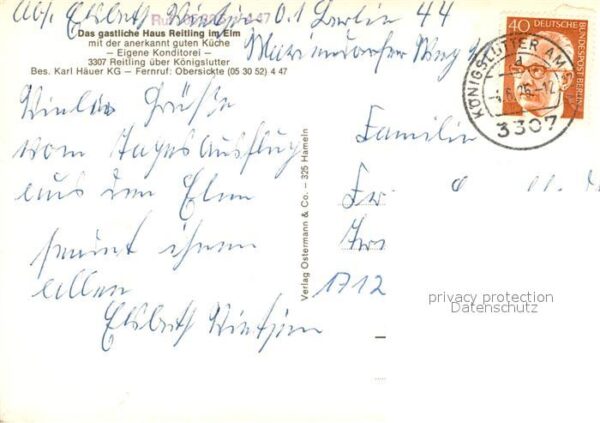 Abs. Elsbeth 0.1 Berlin 44
Mariendorfer Weg
Das gastliche Haus Reitling im Elm
mit der anerkannt guten Küche
– Eigene Konditorei –
3307 Reitling über Königslutter
Bes. Karl Häuer KG – Fernruf: Obersickte (05 30 52) 4 47
40 DEUTSCHE BUNDESPOST BERLIN
KÖNIGSLUTTER AM
3307
Viele Grüße
vom Tagesausflug
aus dem Elm
sendet ihnen
allen
Elsbeth
Verlag Ostermann & Co. – 325 Hameln
Familie
1712
privacy protection
Datenschutz